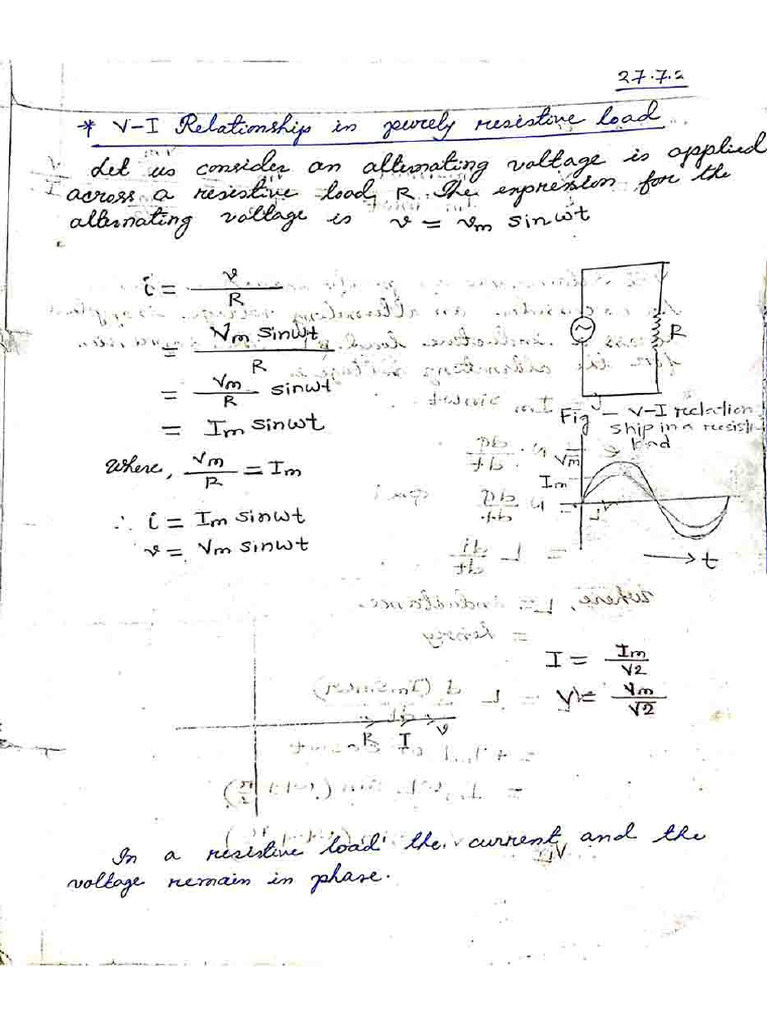 27.7.2
* V-I Relationship in purely resistive load
Let us consider an alternating voltage is applied
across a resistive load, R. The expression for the
alternating voltage is v = vm sinωt
i = v/R
= Vm sinωt / R
= Vm/R sinωt
= Im sinωt
Where, Vm/R = Im
∴ i = Im sinωt
v = Vm sinωt
R
Fig - V-I relation
ship in a resisti
load
Vm
Im
t
I = Im/√2
V = Vm/√2
R I v
In a resistive load the current and the
voltage remain in phase.